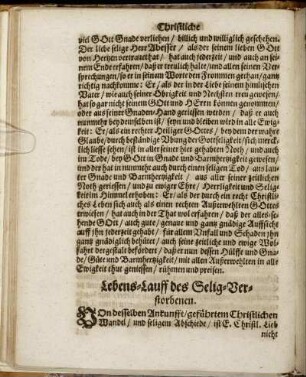 Christliche
viel GOtt Gnade verliehen / billich und williglich geschehen.
Der liebe selige Herr Abesser / als der seinen lieben GOtt
von Hertzen vertrauet hat / hat auch jederzeit / und auch an sei-
nem Ende erfahren / daß er treulich halte / und allen seinen Ver-
sprechungen / so er in seinem Worte den Frommen gethan / gantz
richtig nachkomme: Er / als der in der Liebe seinem himlischen
Vater / wie auch seiner Obrigkeit und Nechsten treu gewesen /
hat so gar nicht seinem GOtt und HErrn können genommen /
oder aus seiner Gnaden-Hand gerissen werden / daß er auch
nunmehr bey demselben ist / seyn und bleiben wird in alle Ewig-
keit: Er / als ein rechter Heiliger GOttes / bey dem der wahre
Glaube / durch beständige Ubung der Gottseligkeit / sich unreck-
lich liesse sehen / ist in aller seiner hier gehabten Noth / und auch
im Tode / bey GOtt in Gnade und Barmhertzigkeit gewesen /
und der hat in nunmehr auch durch einen seligen Tod / aus lau-
ter Gnade und Barmhertzigkeit / aus aller seiner zeitlichen
Noth gerissen / und zu ewiger Ehre / Herrligkeit und Selig-
keit im Himmel erhoben: Er / als der durch ein recht Christli-
ches Leben sich auch als einen rechten Außerwehlten GOttes
erwiesen / hat auch in der That wol erfahren / daß der alles-se-
hende GOtt / auch gute / genaue und gantz gnädige Auffsicht
auff ihn jederzeit gehabt / für allem Unfall und Schaden ihn
gantz gnädiglich behütet / auch seine zeitliche und ewige Wol-
fahrt dergestalt befördert / daß er nun dessen Hülffe und Gna-
de / Güte und Barmhertzigkeit / mit allen Außerwehlten in alle
Ewigkeit thut geniessen / rühmen und preisen.
Lebens-Lauff des Selig-Ver-
storbenen.
VOn desselben Ankunfft / geführtem Christlichen
Wandel / und seligem Abschiede / ist E. Christl. Lieb
nicht